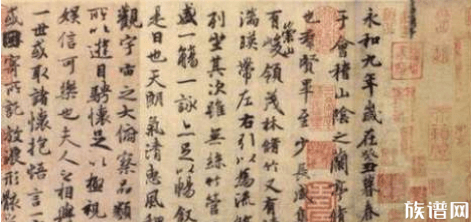 永和九年歲在癸丑暮春
于會稽山陰之蘭亭脩
也羣賢畢至少長咸集
有崇山峻領茂林脩竹又有
湍暎帶左右引以為流
列坐其次雖無絲竹管
盛一觴一詠亦足以暢叙
是日也天朗氣清惠風和
觀宇宙之大俯察品類
所以遊目騁懷足以極視
娛信可樂也夫人之相與
一世或取諸懷抱悟言一
或因寄所託放浪形骸
族谱网